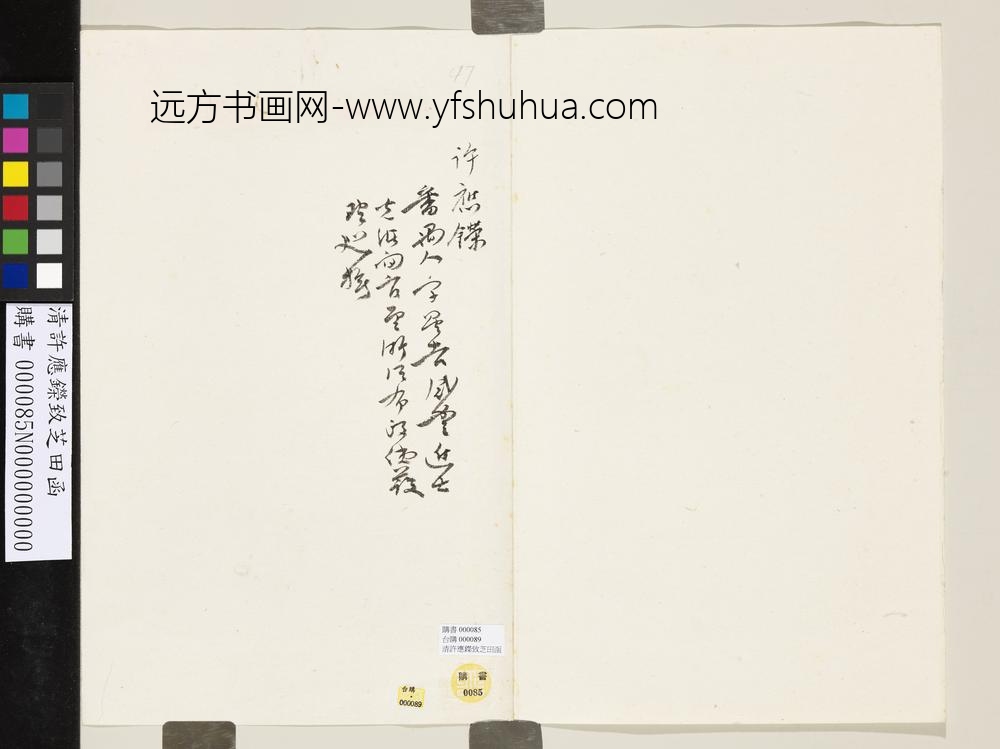 47
远方书画网-www.yfshuhua.com
许应鑅
番禺人字星台咸丰进士
光绪间官至浙江布政使護
理巡撫
清許應鑅致芝田函
購書 000085N000000000
購書 000085
台購 000089
清許應鑅致芝田函
購書
0085
台購
000089